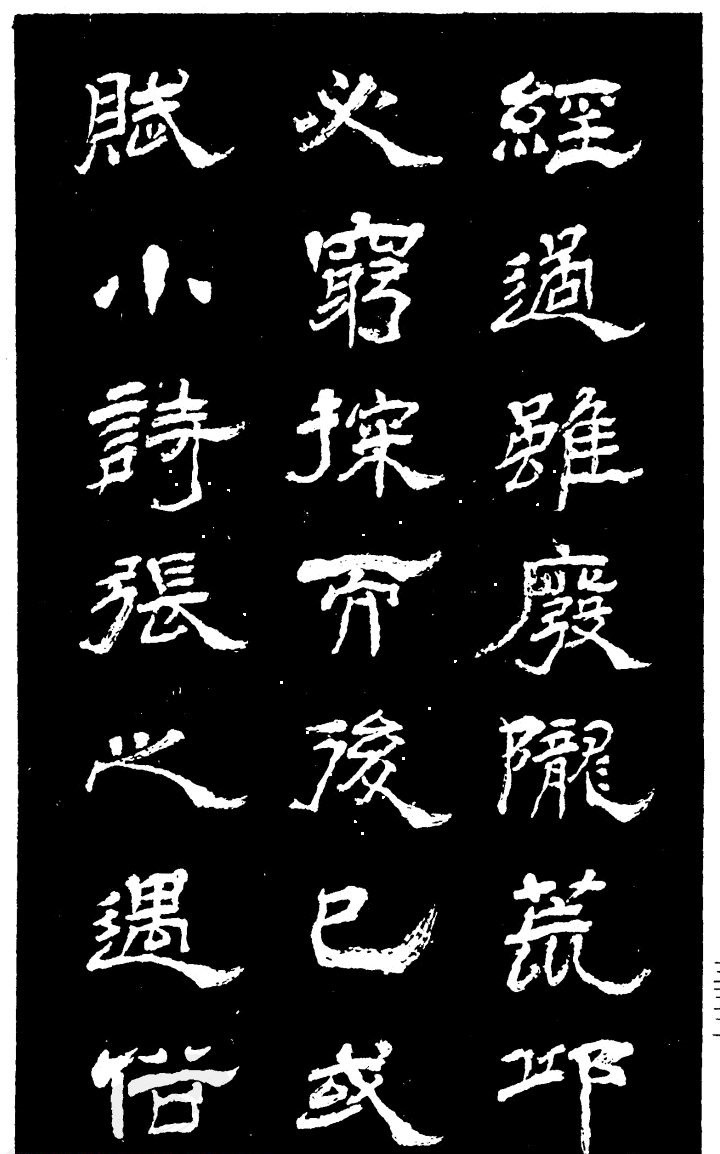 經過雖廢隴荒邱
必窮探而後已或
賦小詩張之遇俗